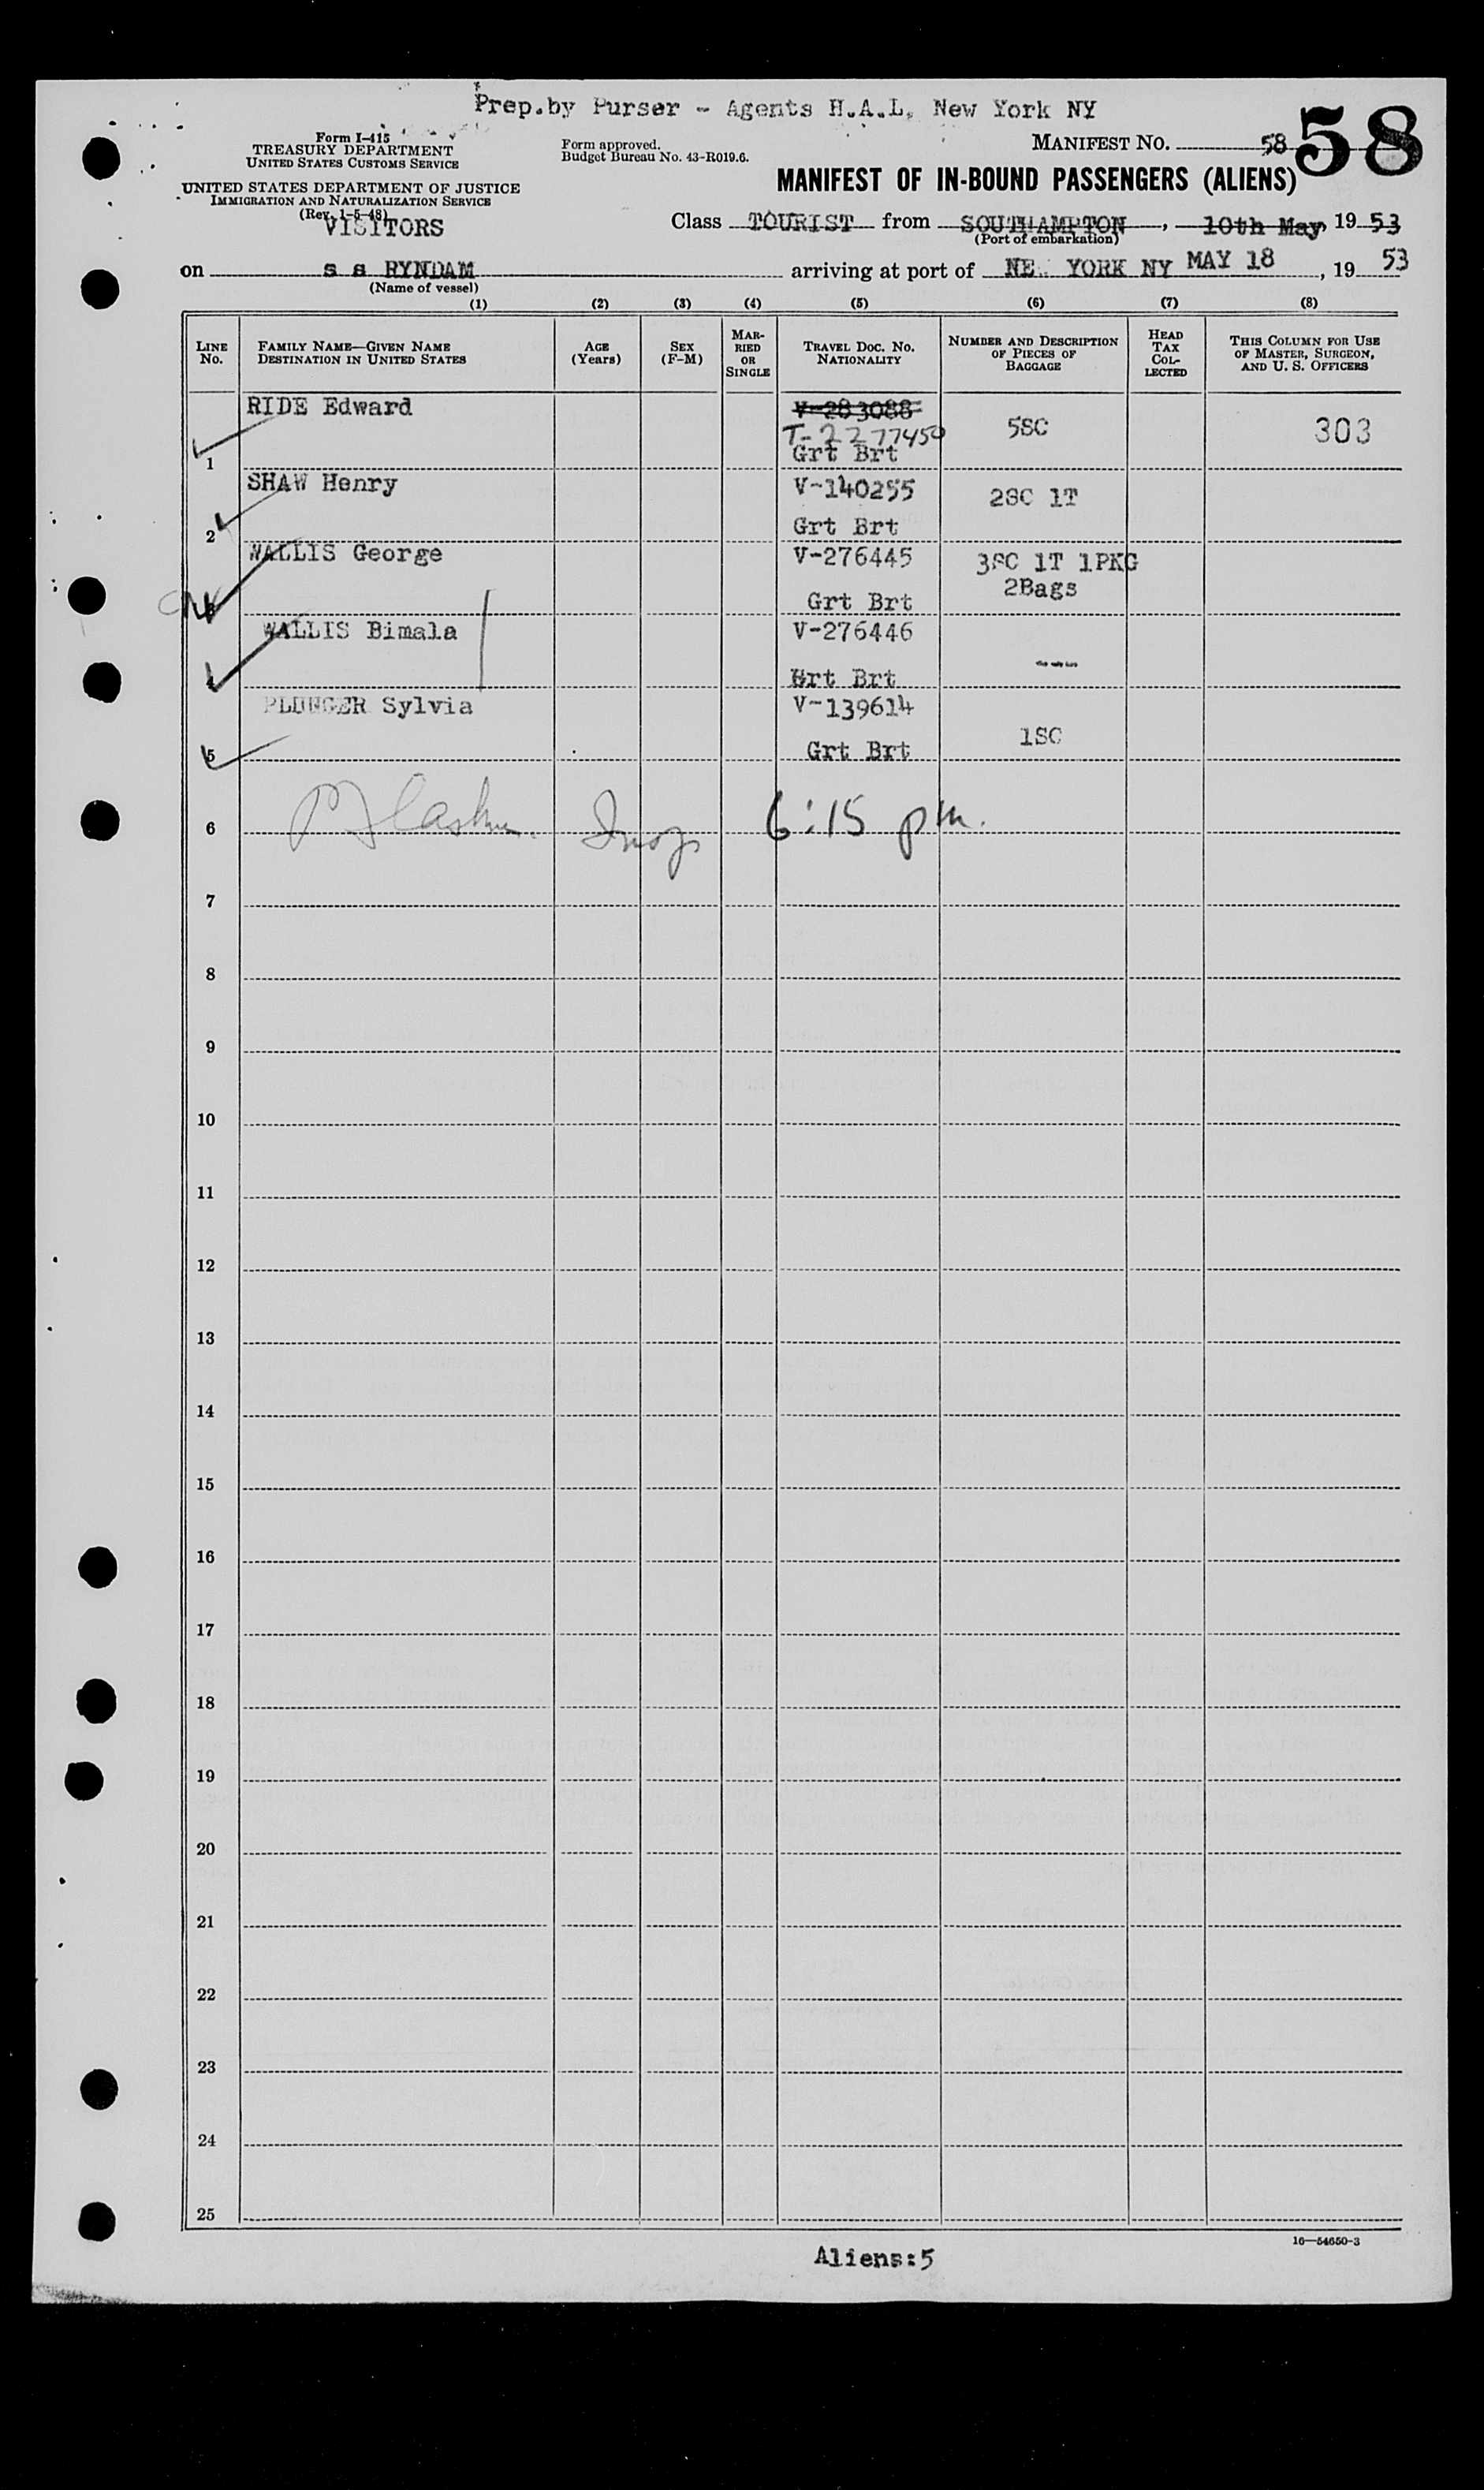 Prep.by Purser - Agents H.A.L. New York NY
Form I-415
TREASURY DEPARTMENT
UNITED STATES CUSTOMS SERVICE
Form approved.
Budget Bureau No. 43-R019.6.
MANIFEST NO. 58
58
UNITED STATES DEPARTMENT OF JUSTICE
IMMIGRATION AND NATURALIZATION SERVICE
(Rev. 1-5-48)
VISITORS
MANIFEST OF IN-BOUND PASSENGERS (ALIENS)
Class TOURIST from SOUTHAMPTON, 10th May, 19 53
(Port of embarkation)
on s s RYNDAM arriving at port of NEW YORK NY MAY 18, 19 53
(Name of vessel)
(1) (2) (3) (4) (5) (6) (7) (8)
LINE No.
FAMILY NAME—GIVEN NAME
DESTINATION IN UNITED STATES
AGE (Years)
SEX (F-M)
MARRIED OR SINGLE
TRAVEL DOC. NO.
NATIONALITY
NUMBER AND DESCRIPTION OF PIECES OF BAGGAGE
HEAD TAX COLLECTED
THIS COLUMN FOR USE OF MASTER, SURGEON, AND U. S. OFFICERS
RIDE Edward V-283088
T-2277450 5SC 303
1 Grt Brt
SHAW Henry V-140255 2SC 1T
2 Grt Brt
WALLIS George V-276445 3SC 1T 1PKG
2Bags
3 Grt Brt
WALLIS Bimala V-276446 ---
4 Grt Brt
PLUNGER Sylvia V-139614
5 Grt Brt 1SC
6 Insp 6:15 pm.
7
8
9
10
11
12
13
14
15
16
17
18
19
20
21
22
23
24
25
16—54650-3
Aliens:5